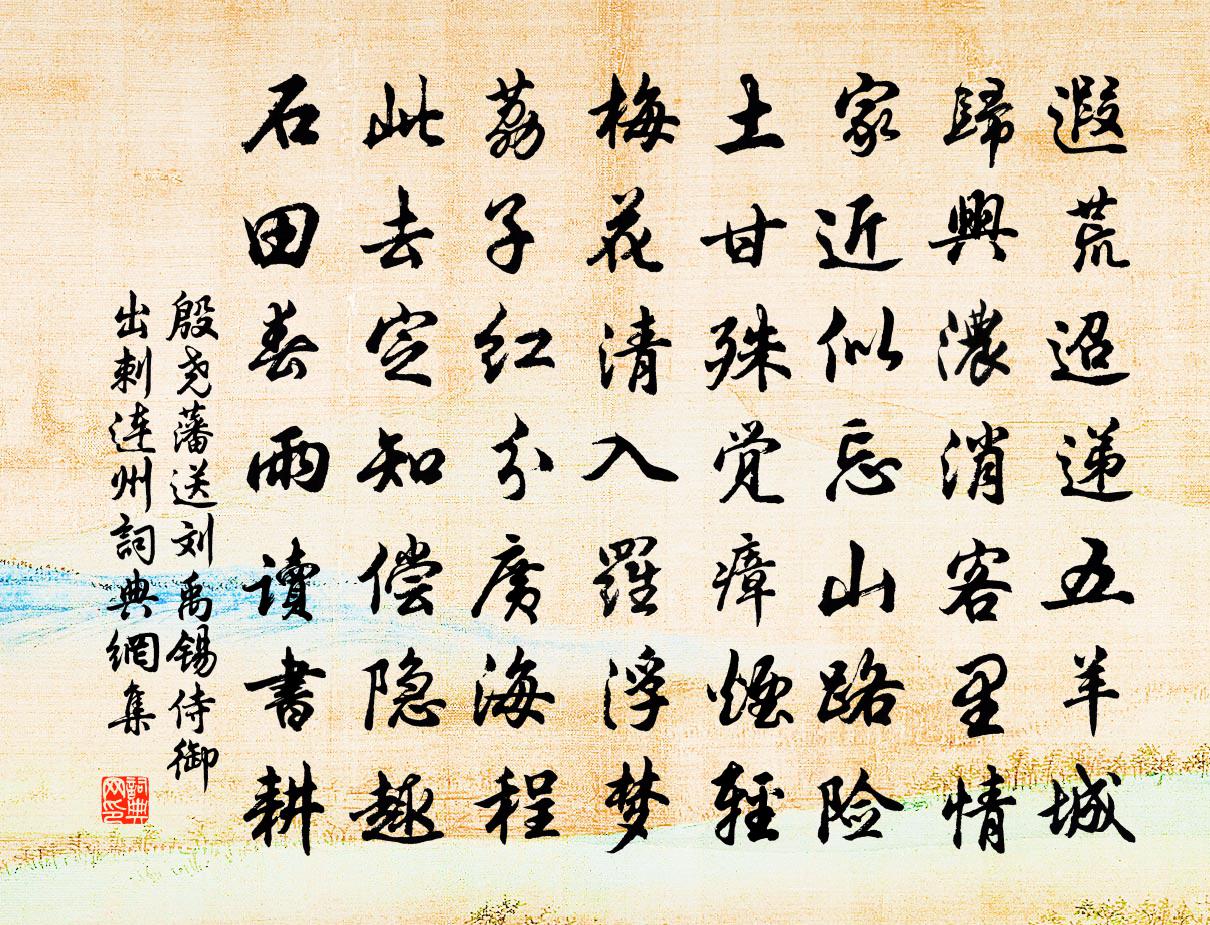 遐荒迢递五羊城
歸興濃消客里情
家近似忘山路险
土甘殊觉瘴煙輕
梅花清入羅浮梦
荔子红分廣海程
此去定知偿隐趣
石田春雨讀書耕
殷尧藩送刘禹锡侍御
出刺连州詞典網集
詞典
网印